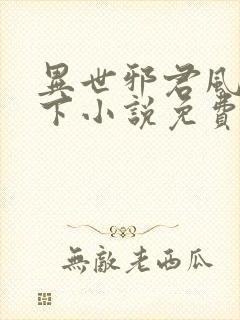 異世邪君風
下小說免費
無敵老西瓜